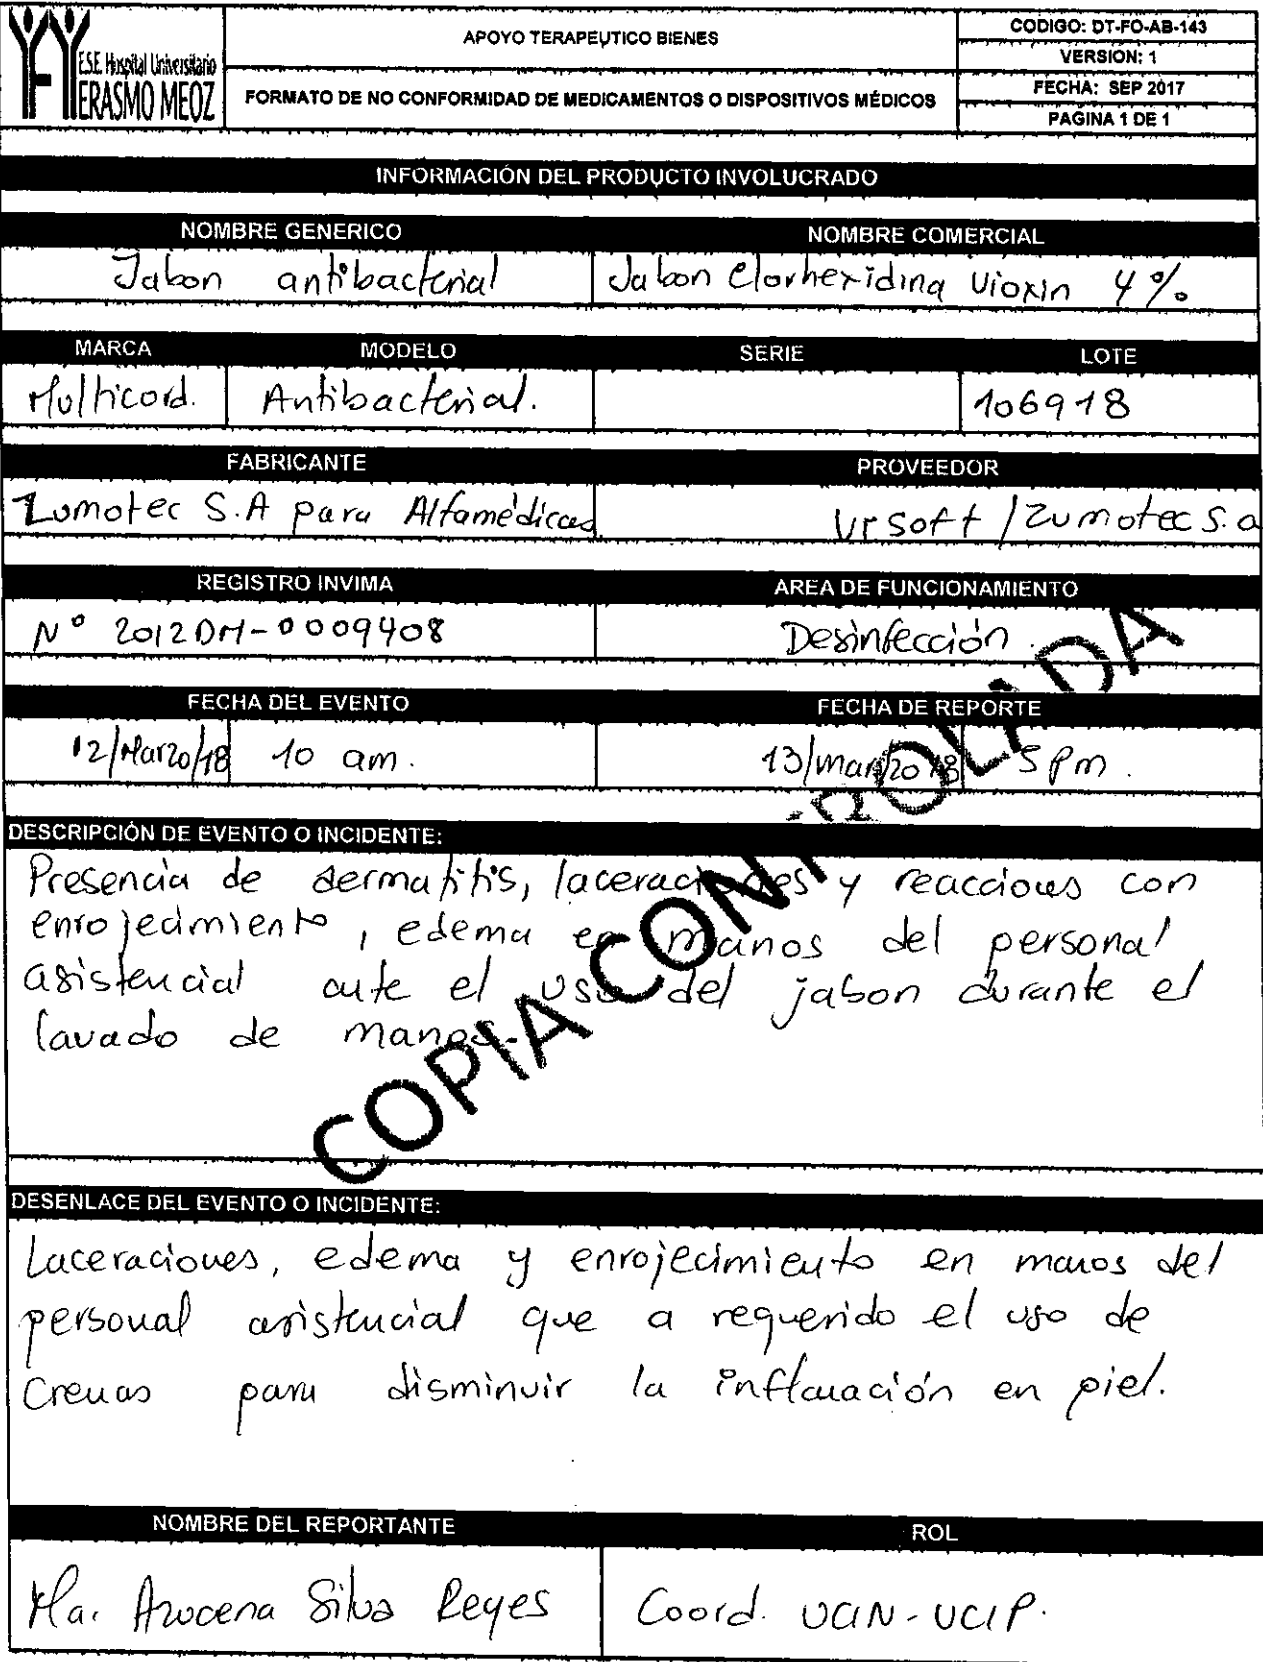 E.S.E. Hospital Universitario
ERASMO MEOZ
APOYO TERAPEUTICO BIENES
FORMATO DE NO CONFORMIDAD DE MEDICAMENTOS O DISPOSITIVOS MÉDICOS
CODIGO: DT-FO-AB-143
VERSION: 1
FECHA: SEP 2017
PAGINA 1 DE 1
INFORMACIÓN DEL PRODUCTO INVOLUCRADO
NOMBRE GENERICO NOMBRE COMERCIAL
Jabon antibacterial Jabon Clorhexidina Vioxin 4%
MARCA MODELO SERIE LOTE
Multicord. Antibacterial. 106918
FABRICANTE PROVEEDOR
Zumotec S.A para Alfamédicas Vrsoft / Zumotec S.a
REGISTRO INVIMA AREA DE FUNCIONAMIENTO
N° 2012DM-0009408 Desinfección.
FECHA DEL EVENTO FECHA DE REPORTE
12/Marzo/18 10 am. 13/marzo 18 5 pm.
DESCRIPCIÓN DE EVENTO O INCIDENTE:
Presencia de dermatitis, laceraciones y reacciones con
enrojecimiento, edema en manos del personal
asistencial ante el uso del jabon durante el
lavado de manos.
COPIA CONTROLADA
DESENLACE DEL EVENTO O INCIDENTE:
Laceraciones, edema y enrojecimiento en manos del
personal asistencial que a requerido el uso de
Cremas para disminuir la inflamación en piel.
NOMBRE DEL REPORTANTE ROL
Ma. Azucena Silva Reyes Coord. UCIN-UCIP.